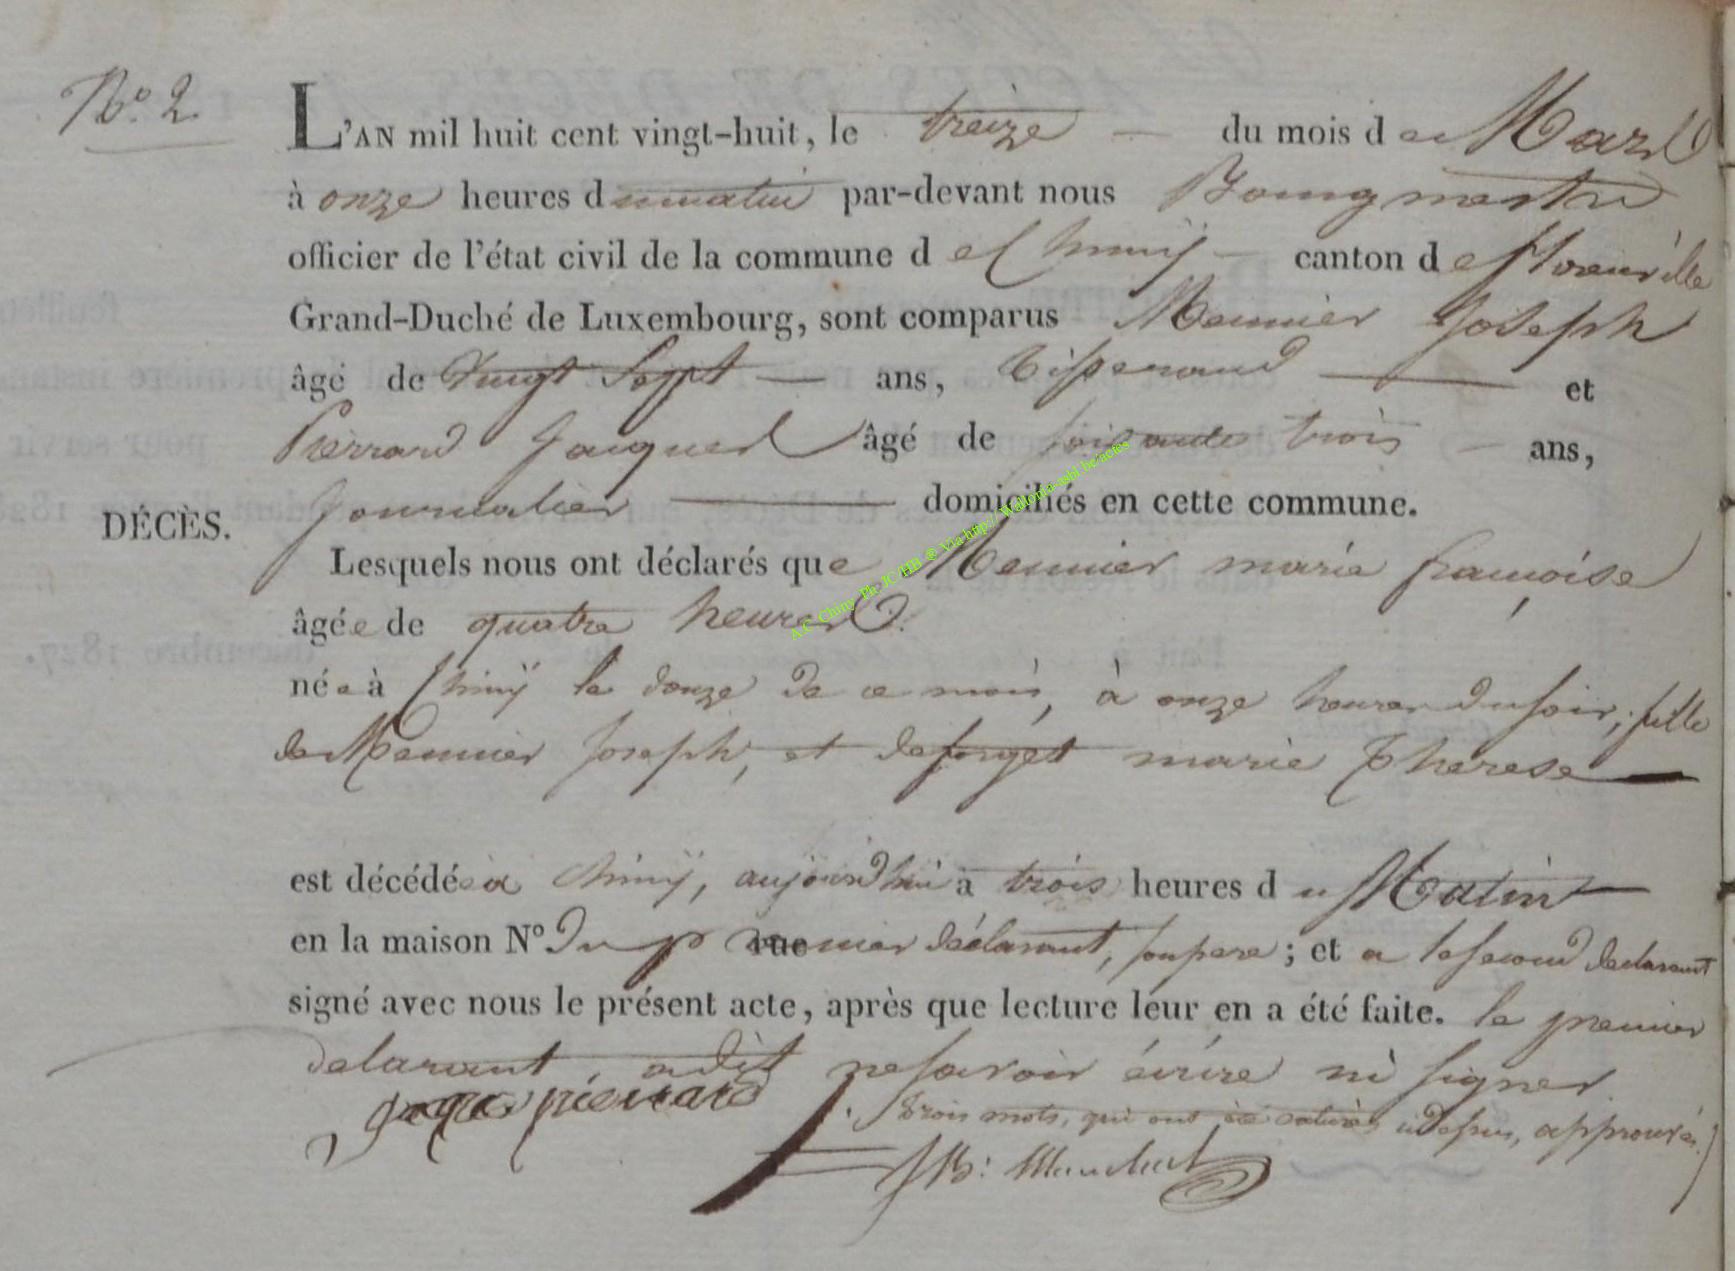 No. 2.
L'AN mil huit cent vingt-huit, le treize du mois de Mars
à onze heures du matin par-devant nous Bourgmestre
officier de l'état civil de la commune de Chiny canton de florenville
Grand-Duché de Luxembourg, sont comparus Meunier Joseph
âgé de vingt Sept ans, Tisserand et
Pierrard Jacques âgé de soixante trois ans,
Journalier domiciliés en cette commune.
DÉCÈS.
Lesquels nous ont déclarés que Meunier marie françoise
âgée de quatre heures.
née à Chiny le douze de ce mois, à onze heures du soir, fille
de Meunier Joseph, et deforget marie Therese
est décédée a Chiny, aujourd'hui à trois heures du Matin
en la maison N° Du premier rue déclarant, son pere ; et a le second declarant
signé avec nous le présent acte, après que lecture leur en a été faite. le premier
delarant, a dit ne savoir écrire ni signer.
jaques pierrard
trois mots, qui ont été, approuvés
A.C. Chiny Ph. JC HB ® Via http://Wallonia-asbl.be/actes